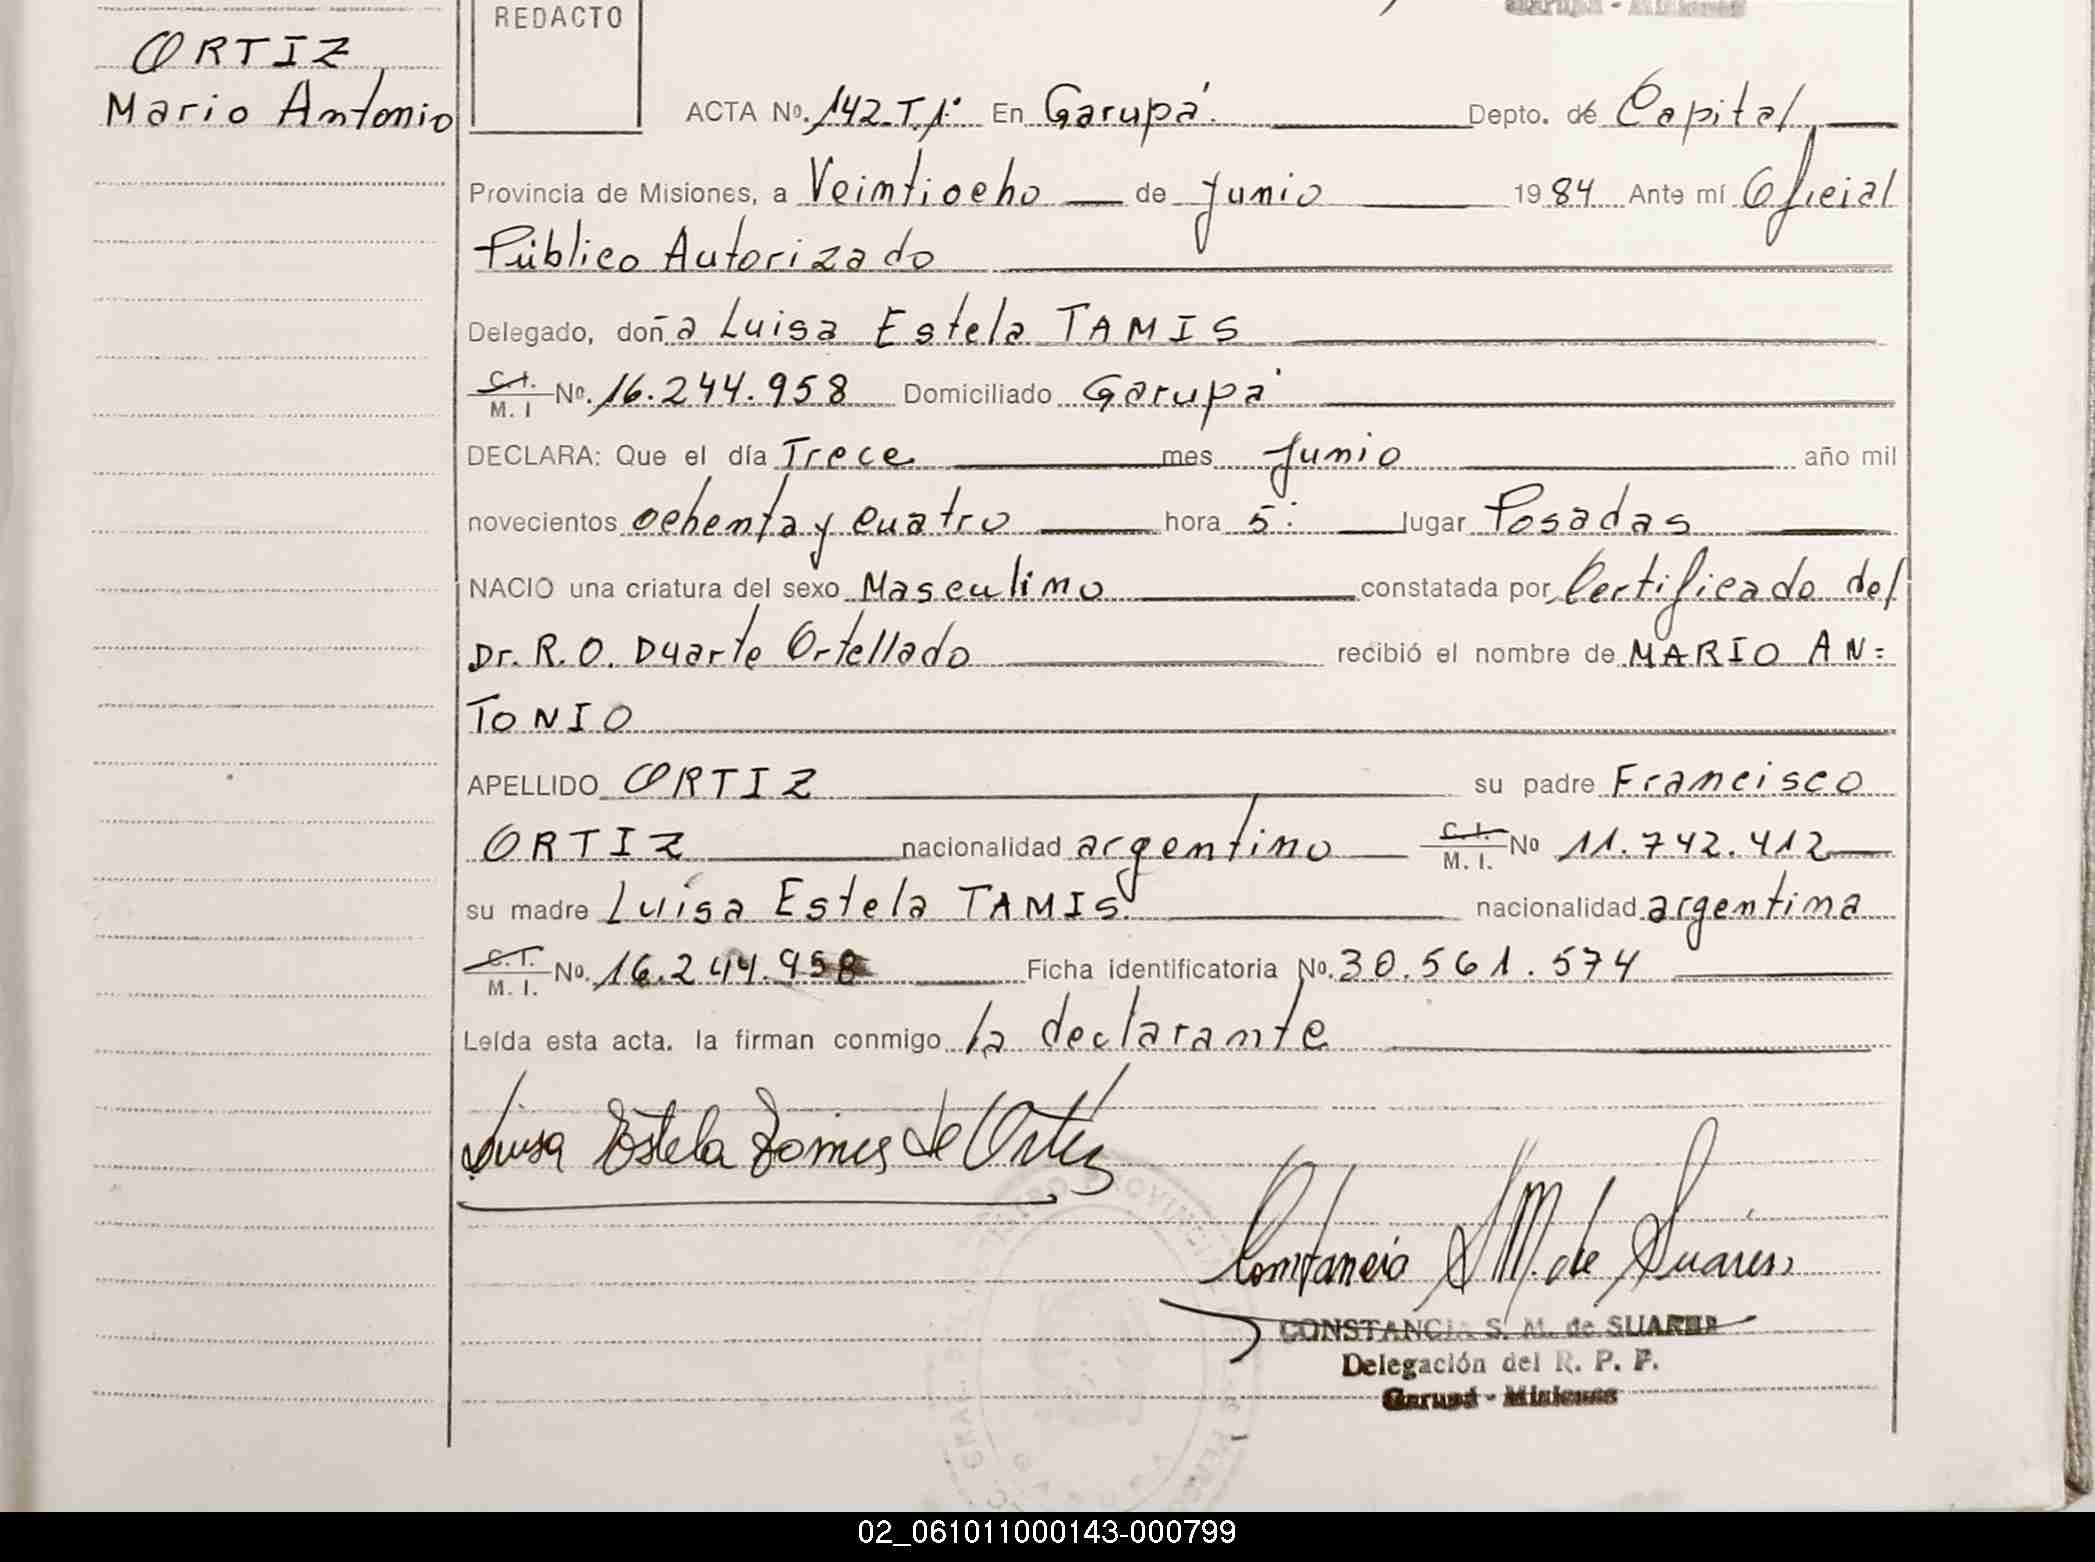 REDACTO
ORTIZ
Mario Antonio
ACTA Nº. 142.T.1º En Garupá. Depto. de Capital
Provincia de Misiones, a Veintiocho de Junio 1984 Ante mí Oficial
Público Autorizado
Delegado, doña Luisa Estela TAMIS
C.I. M. I Nº. 16.244.958 Domiciliado Garupá
DECLARA: Que el día Trece mes Junio año mil
novecientos ochenta y cuatro hora 5: lugar Posadas
NACIO una criatura del sexo Masculino constatada por Certificado del
Dr. R. O. Duarte Ortellado recibió el nombre de MARIO AN=
TONIO
APELLIDO ORTIZ su padre Francisco
ORTIZ nacionalidad argentino C.I. M. I. Nº 11.742.412
su madre Luisa Estela TAMIS. nacionalidad argentina
C.I. M. I. Nº. 16.244.958 Ficha identificatoria Nº. 30.561.574
Leída esta acta. la firman conmigo la declarante
Luisa Estela Tamis de Ortiz
Constancia S M. de Suárez
CONSTANCIA S. M. de SUAREZ
Delegación del R. P. P.
Garupá - Misiones
02_061011000143-000799